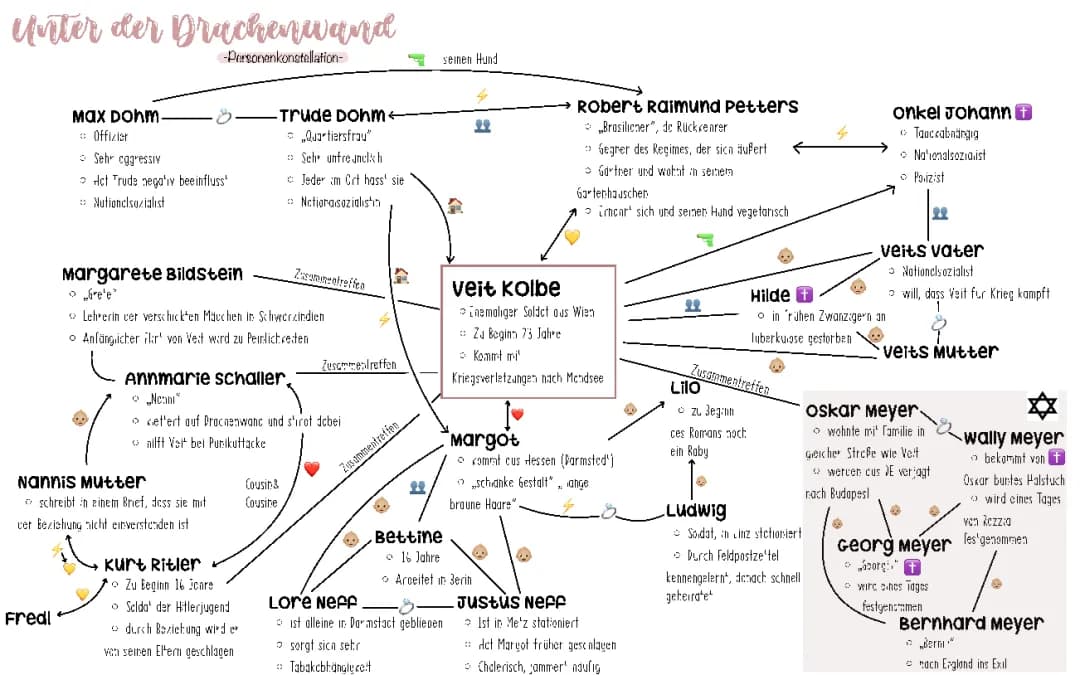 Unter der Drachenwand
-Personenkonstellation-
seinen Hund
Max Dohm
Offizier
Sehr aggressiv
Hat Trude negativ beeinflusst
Nationalsozialist
Trude Dohm
„Quartiersfrau"
Sehr unfreundlich
Jeder im Ort hasst sie
Nationalsozialistin
Robert Raimund Petters
„Brasilianer", da Rückkehrer
Gegner des Regimes, der sich äußert
Gärtner und wohnt in seinem
Gartenhäuschen
Ernährt sich und seinen Hund vegetarisch
Onkel Johann
Tabakabhängig
Nationalsozialist
Polizist
Margarete Bildstein
„Grete"
Lehrerin der verschickten Mädchen in Schwarzindien
Anfänglicher Flirt von Veit wird zu Peinlichkeiten
Zusammentreffen
Veit Kolbe
Ehemaliger Soldat aus Wien
Zu Beginn 23 Jahre
Kommt mit
Kriegsverletzungen nach Mondsee
Veits Vater
Nationalsozialist
will, dass Veit für Krieg kämpft
Hilde
in frühen Zwanzigern an
Tuberkulose gestorben
Veits Mutter
Annmarie Schaller
„Nanni"
klettert auf Drachenwand und stirbt dabei
hilft Veit bei Panikattacke
Zusammentreffen
Zusammentreffen
Zusammentreffen
Nannis Mutter
schreibt in einem Brief, dass sie mit
der Beziehung nicht einverstanden ist
Cousin&
Cousine
Kurt Ritler
Zu Beginn 16 Jahre
Soldat der Hitlerjugend
durch Beziehung wird er
von seinen Eltern geschlagen
Fredl
Margot
kommt aus Hessen (Darmstadt)
„schlanke Gestalt" „ lange
braune Haare"
Lilo
zu Beginn
des Romans noch
ein Baby
Ludwig
Soldat, in Linz stationiert
Durch Feldpostzettel
kennengelernt, danach schnell
geheiratet
Bettine
16 Jahre
Arbeitet in Berlin
Lore Neff
ist alleine in Darmstadt geblieben
sorgt sich sehr
Tabakabhängigkeit
Justus Neff
Ist in Metz stationiert
Hat Margot früher geschlagen
Cholerisch, jammert häufig
Oskar Meyer
wohnte mit Familie in
gleicher Straße wie Veit
werden aus DE verjagt
nach Budapest
Wally Meyer
bekommt von
Oskar buntes Halstuch
wird eines Tages
von Razzia
festgenommen
Georg Meyer
wird eines Tages
festgenommen
Bernhard Meyer
„Berni"
nach England ins Exil